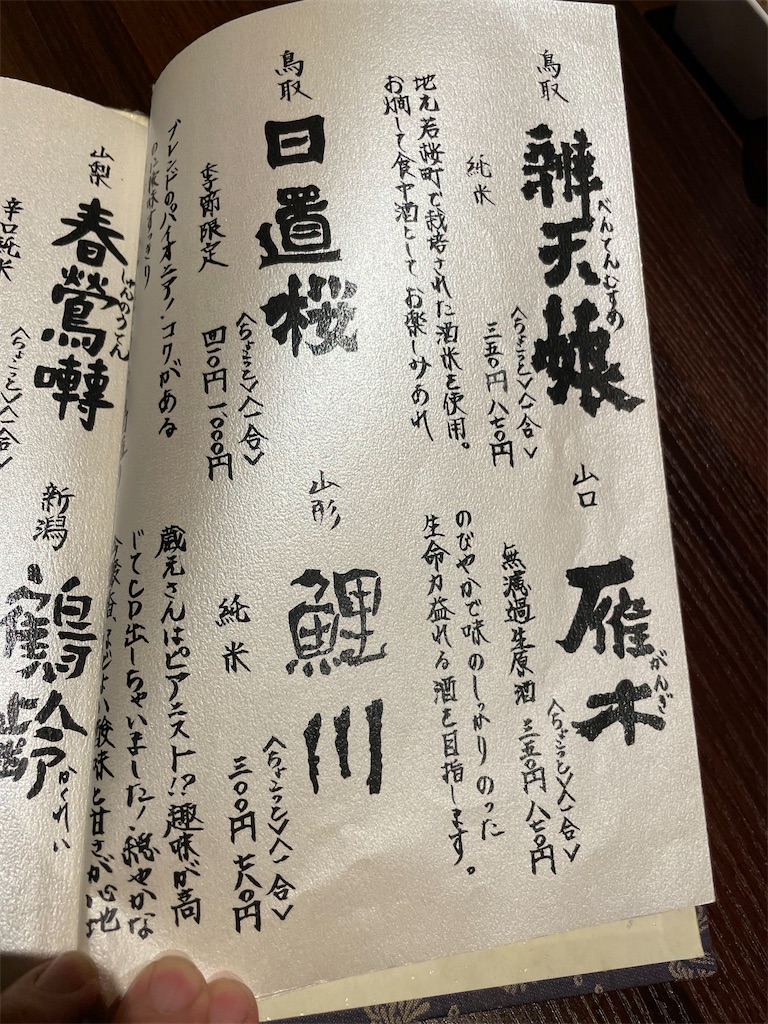 鳥取
辨天娘
べんてんむすめ
純米
〈ちょこっと〉〈一合〉
三五〇円 八七〇円
地元若桜町で栽培された酒米を使用。
お燗して食中酒としてお楽しみあれ
山口
雁木
がんぎ
無濾過生原酒
〈ちょこっと〉〈一合〉
三五〇円 八七〇円
のびやかで味のしっかりのった
生命力溢れる酒を目指します。
鳥取
日置桜
季節限定
〈ちょこっと〉〈一合〉
四一〇円 一、〇〇〇円
ブレンドのパイオニア!コクがある
すっきり
山形
鯉川
純米
〈ちょこっと〉〈一合〉
三〇〇円 七八〇円
蔵元さんはピアニスト!?趣味が高
じてCD出しちゃいました!穏やかな
酸味と甘さが心地
山梨
春鶯囀
しゅんのうてん
辛口純米
〈ちょこっと〉〈一合〉
新潟
鶴齢
かくれい